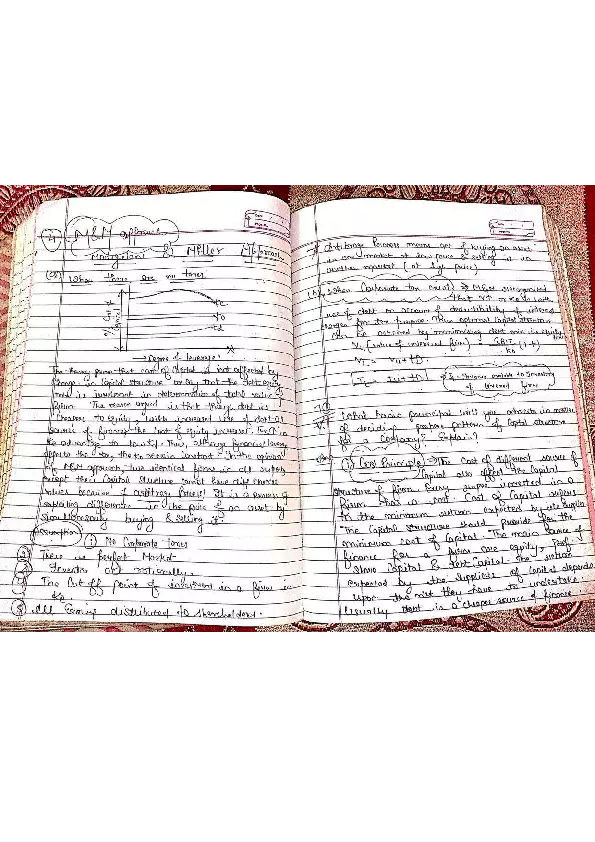 ④ M&M approach
Modigliani & Miller
(a) When there are no taxes.
→ Degree of leverage X
The theory prove that cost of capital is not affected by
change in capital structure or say that the debt equity
is irrelevant in determination of total value of
firm. The reason argued is that though debt is
cheaper to equity, with increased use of debt as
source of finance the cost of equity increase.
the advantage Thus, although financial leverage
affects the remain constant. In the opinion
of M&M approach, two identical firms in all respects
except their capital structure cannot have diff
values because of arbitrage process. It is a process of
exploiting difference in the price of an asset by
simultaneously buying & selling it.
Assumption ① No Corporate Taxes
② There is perfect Market
③ Investor act rationally.
④ The cut off point of investment in a firm is
Ko
⑤ All Earning distributed to shareholders.
Arbitrage Process means act of buying an asset
in one market at low price & selling it in
another market (at high price)
(b) When Corporate tax exist → M&M recognized
that
use of debt on account of deductibility of interest
charges for tax purpose. Thus optimal capital structure
can be attained by maximising debt mix in equity
Vu (value of unlevered firm) = EBIT (1-t)
Ko
Q What basic principal will you
of deciding pattern of capital structure
for a company? Explain?
Ans (i) Cost Principle → The cost of different source of
Capital also affect the capital
structure of firm. Every rupee invested in a
firm has a cost. Cost of capital refers
to the minimum return expected by its supplier
The capital structure should provide for the
minimum cost of capital. The main source of
finance for a firm are equity, Pref.
share capital & debt capital. the return
expected by the suppliers of capital depends
upon the risk they have to undertake.
Usually debt is a cheaper source of finance.